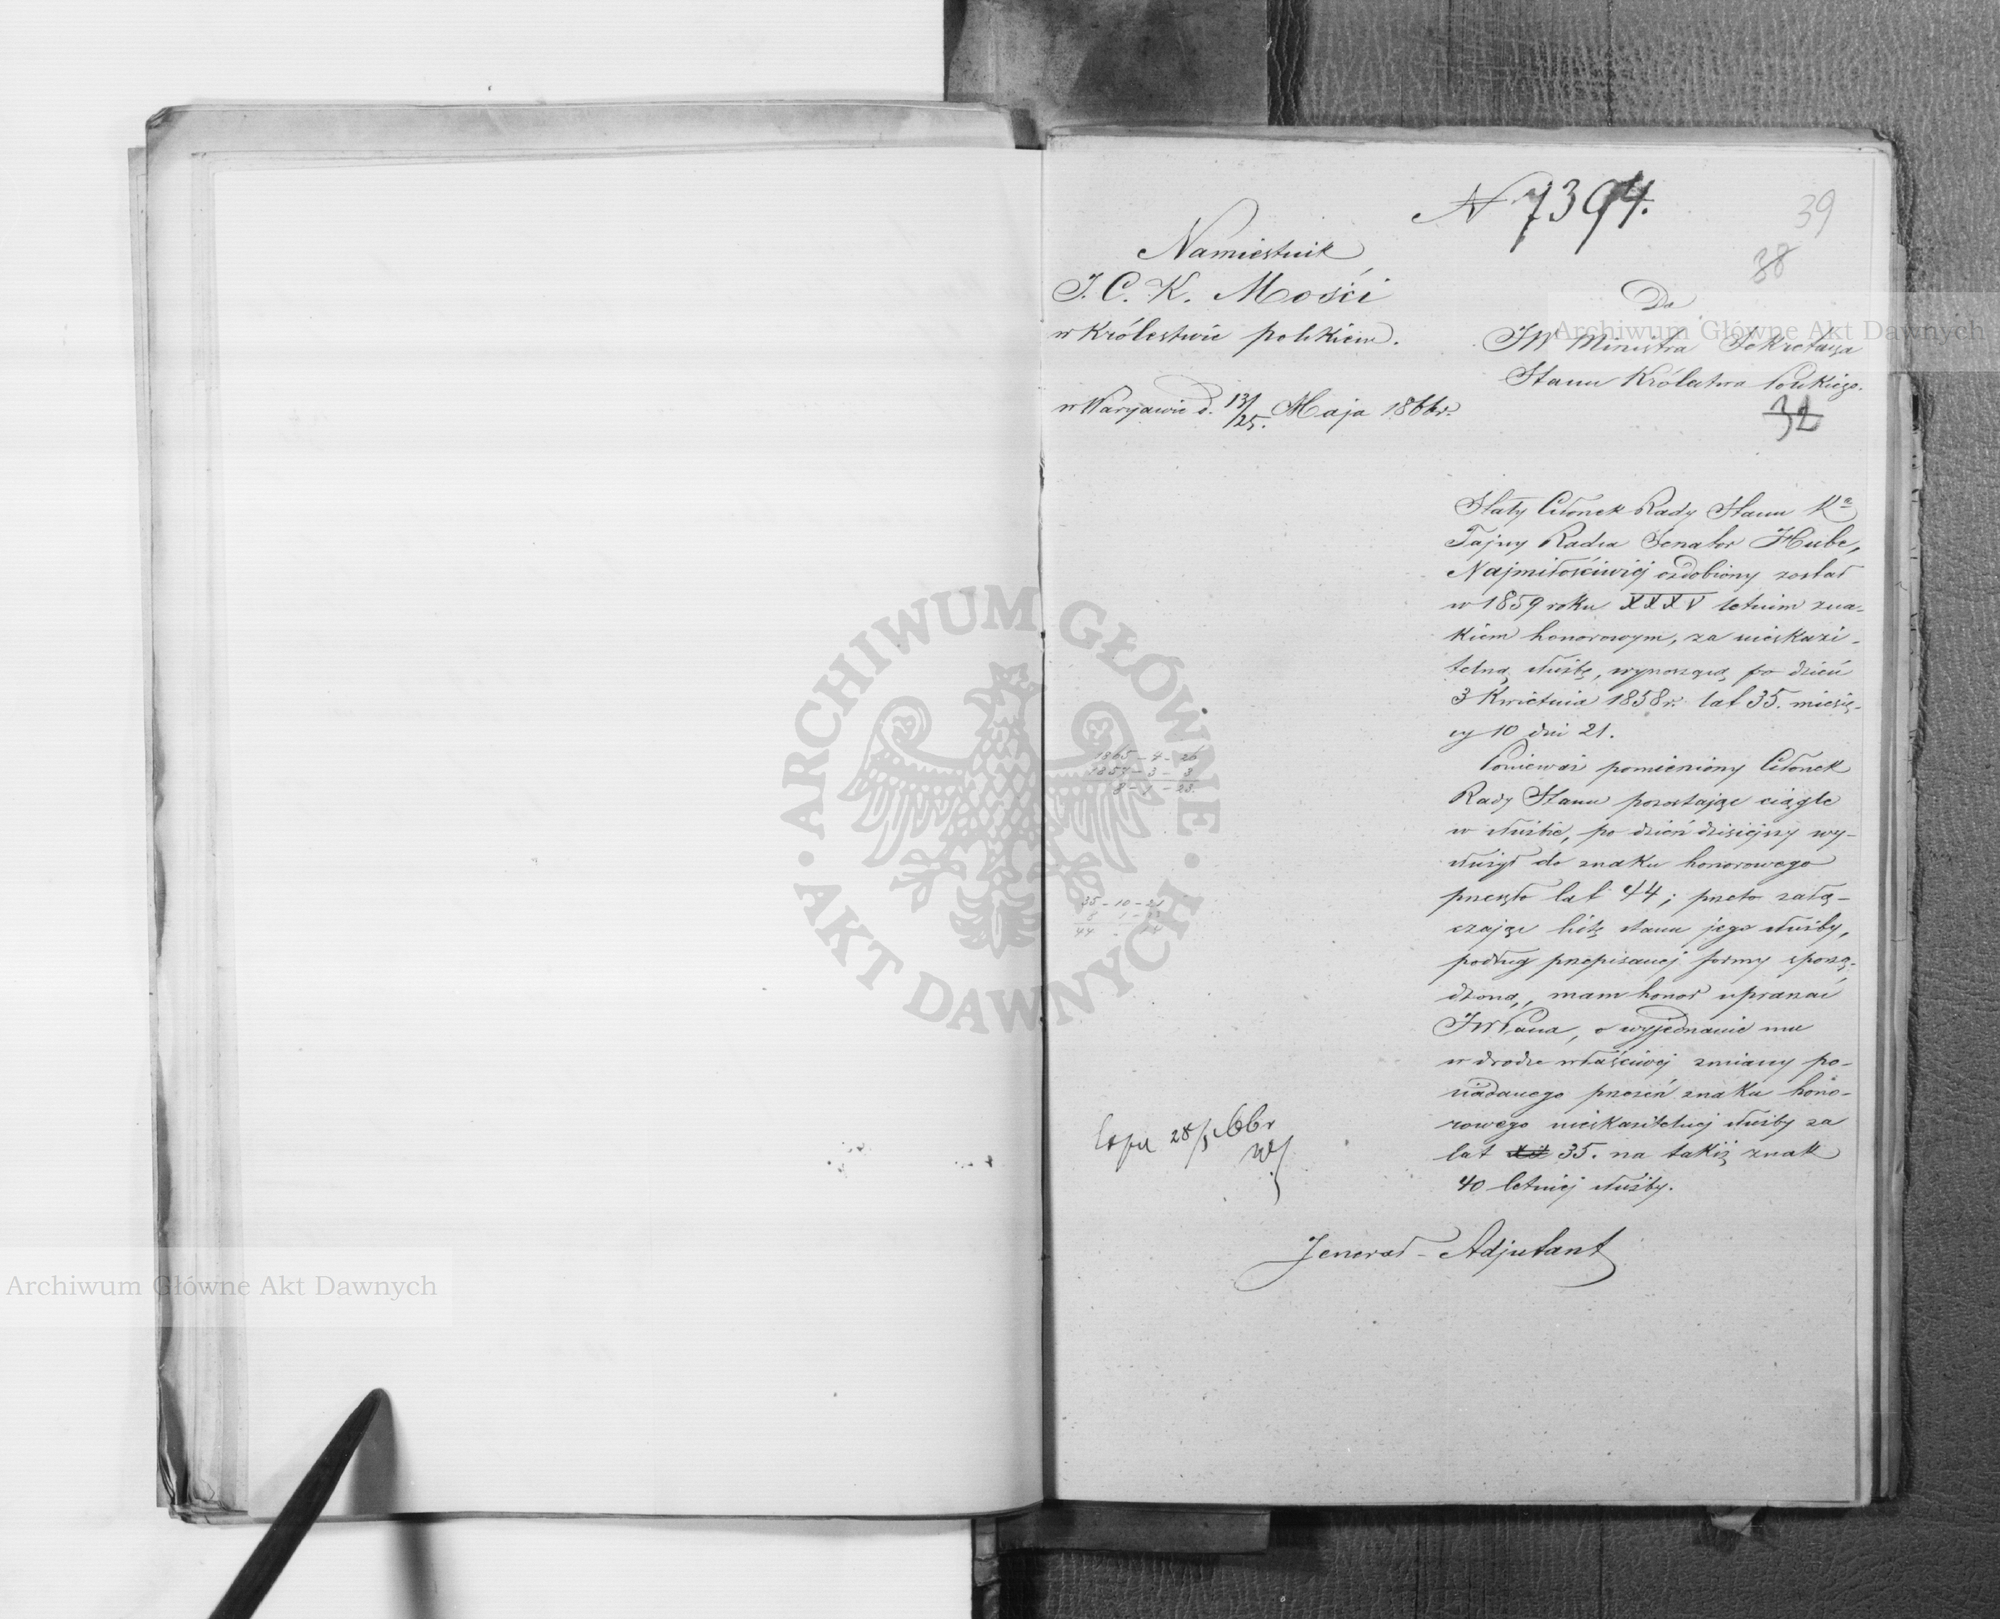 N 7394.
39
38
Namiestnik
J. C. K. Mości
w Królestwie polskiem.
w Warszawie d. 13/25. Maja 1866 r.
Do
JW Ministra Sekretarza
Stanu Królestwa Polskiego.
32
Stały Członek Rady Stanu Kа
Tajny Radca Senator Hube,
Najmiłościwiéj ozdobiony został
w 1859 roku XXXV letnim zna-
kiem honorowym, za nieskazi-
telną służbę, wynoszącą po dzień
3 Kwietnia 1858 r. lat 35. miesię-
cy 10 dni 21.
Ponieważ pomieniony Członek
Rady Stanu pozostając ciągle
w służbie, po dzień dzisiejszy wy-
służył do znaku honorowego
przeszło lat 44; przeto załą-
czając listę stanu jego służby,
podług przepisanej formy sporzą-
dzoną, mam honor upraszać
JWPana, o wyjednanie mu
w drodze właściwej zmiany po-
siadanego przezeń znaku hono-
rowego nieskazitelnej służby za
lat 35. na takiż znak
40 letniej służby.
Jenerał-Adjutant
1865-4-26
1857-3-3
8-1-23.
35-10-21
8 1-23
44
28/5 66 r
Archiwum Główne Akt Dawnych
Archiwum Główne Akt Dawnych
ARCHIWUM GŁÓWNE
AKT DAWNYCH